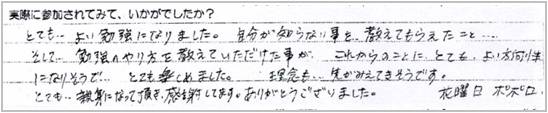 実際に参加されてみて、いかがでしたか？
とても…よい勉強になりました。自分が知らない事を、教えてもらえたこと…
そして、勉強のやり方を教えていただけた事が、これからのことに、とても、よい方向性
になりそうで…とても楽しめました。理念も…先がみえてきそうです。
とても…親身になって頂き、感謝してます。ありがとうございました。花曜日 ポポロ